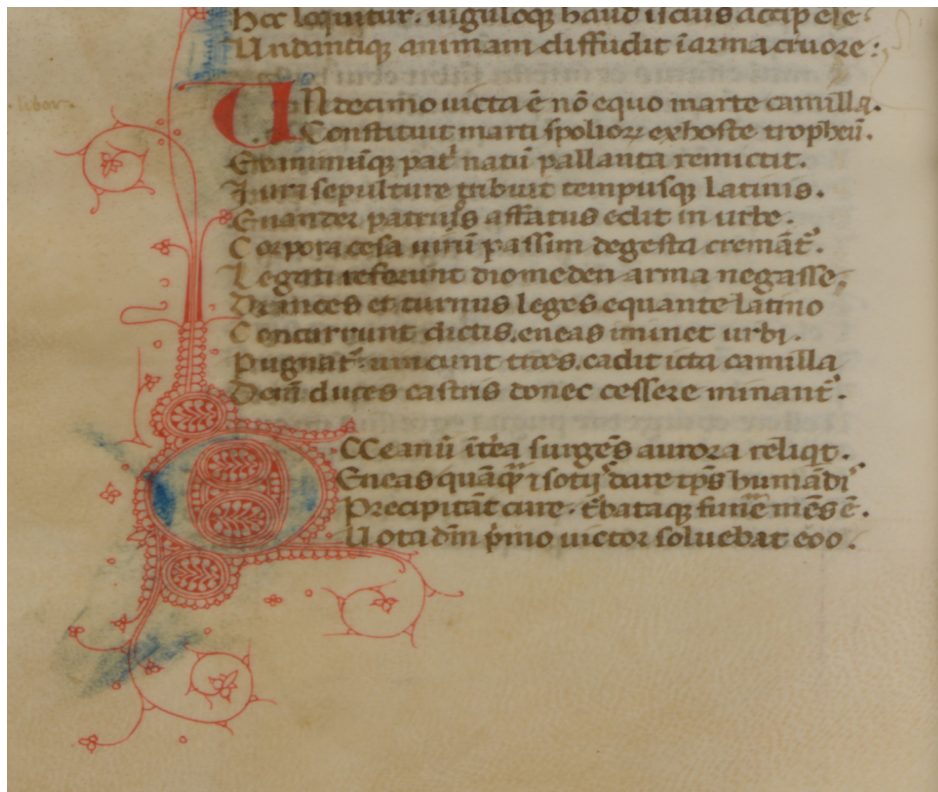 Hec loquitur. iuguloqȝ haud iscius accipit ēse.
Undantiqȝ animam diffudit ī arma cruore:
liber.
UNdecimo uicta ē nō equo marte camilla.
Constituit marti spolioꝝ ex hoste tropheū.
Exanimūqȝ pat̄ natū pallanta remictit.
Iura sepulture tribuit tempusqȝ latinis.
Euander patruis affatus edit in urbe.
Corpora cesa uirū passim degesta cremāt̄.
Legati referunt diomeden arma negasse,
Drances et turnus leges equante latino
Concurrunt dictis. eneas iminet urbi.
Pugnat̄. uincunt troes. cadit icta camilla
Dein duces castris donec cessere minant̄.
OCCeanū īt̄ea surgēs aurora reliqt.
Eneas quāqȝ ⁊ sotijs dare tp̄s humādis
Precipitāt cure. t̄bataqȝ funē mēs ē.
Uota dm̄ p̄mo uictor soluebat eoo.